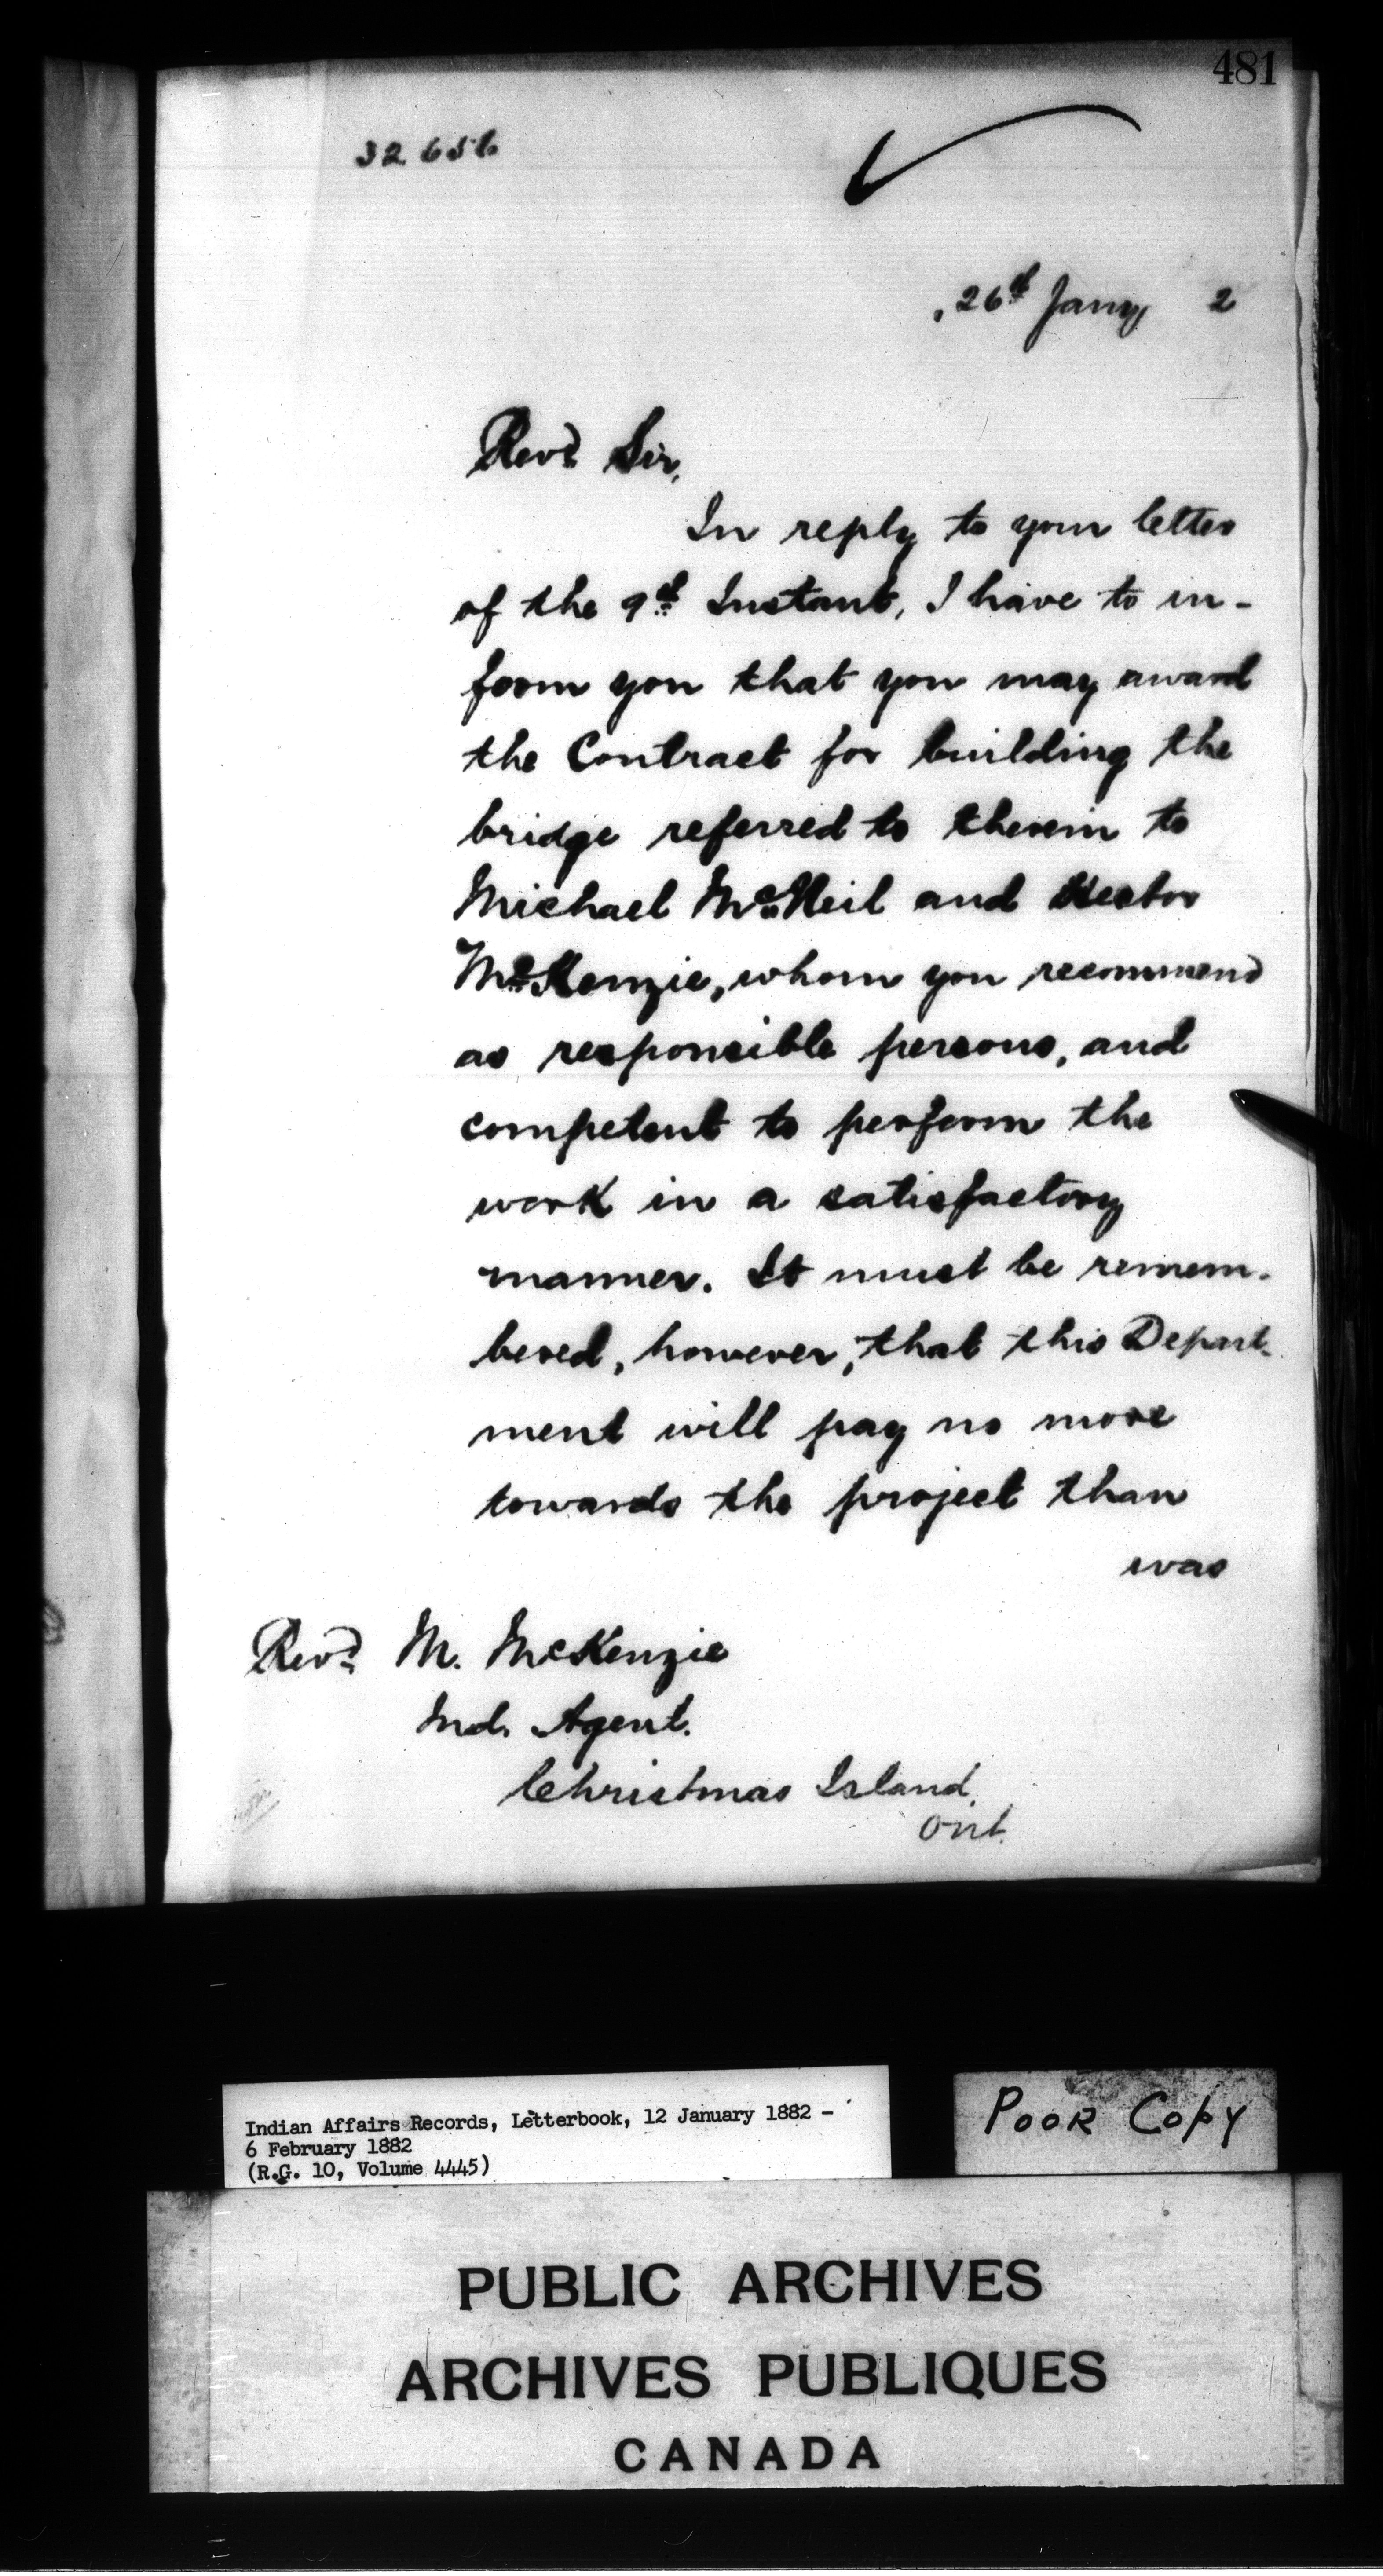 481
32656
26th Jany 2
Revd Sir,
In reply to your letter
of the 9th Instant, I have to in-
form you that you may award
the Contract for building the
bridge referred to therein to
Michael McNeil and Hector
McKenzie, whom you recommend
as responsible persons, and
competent to perform the
work in a satisfactory
manner. It must be remem-
bered, however, that this Depart-
ment will pay no more
towards the project than
was
Revd M. McKenzie
Ind. Agent.
Christmas Island
Ont.
Indian Affairs Records, Letterbook, 12 January 1882 -
6 February 1882
(R.G. 10, Volume 4445)
POOR COPY
PUBLIC ARCHIVES
ARCHIVES PUBLIQUES
CANADA